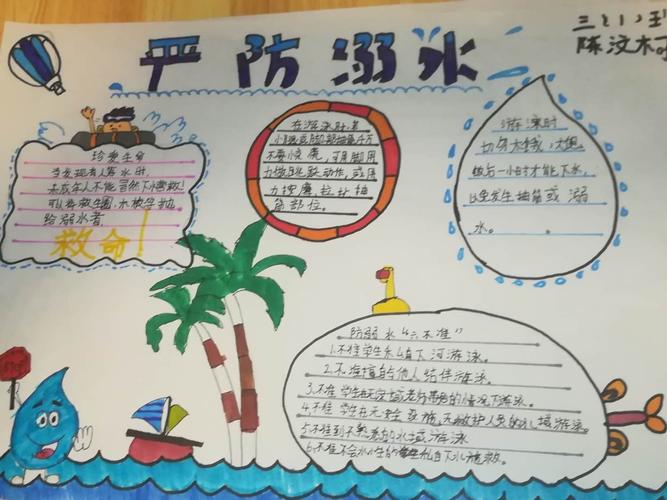 严防溺水
三(1)班
陈汶
珍爱生命
当发现有人落水时,
未成年人不能冒然下水营救!
可以将救生圈,木板等抛
给溺水者.
救命!
在游泳时,若
小腿或脚部抽筋千万
不要惊慌,可用脚用
力做蹬腿动作,或用
力按摩、拉扯抽
筋部位。
游泳时
切勿太饿、太饱
饭后一小时才能下水,
以免发生抽筋或溺
水。
防溺水“六不准”
1.不准学生私自下河游泳。
2.不准擅自与他人结伴游泳。
3.不准学生在无家长或老师带领的情况下游泳。
4.不准学生在无安全设施,无救护人员的水域游泳。
5.不准到不熟悉的水域游泳
6.不准不会水性的学生私自下水施救。